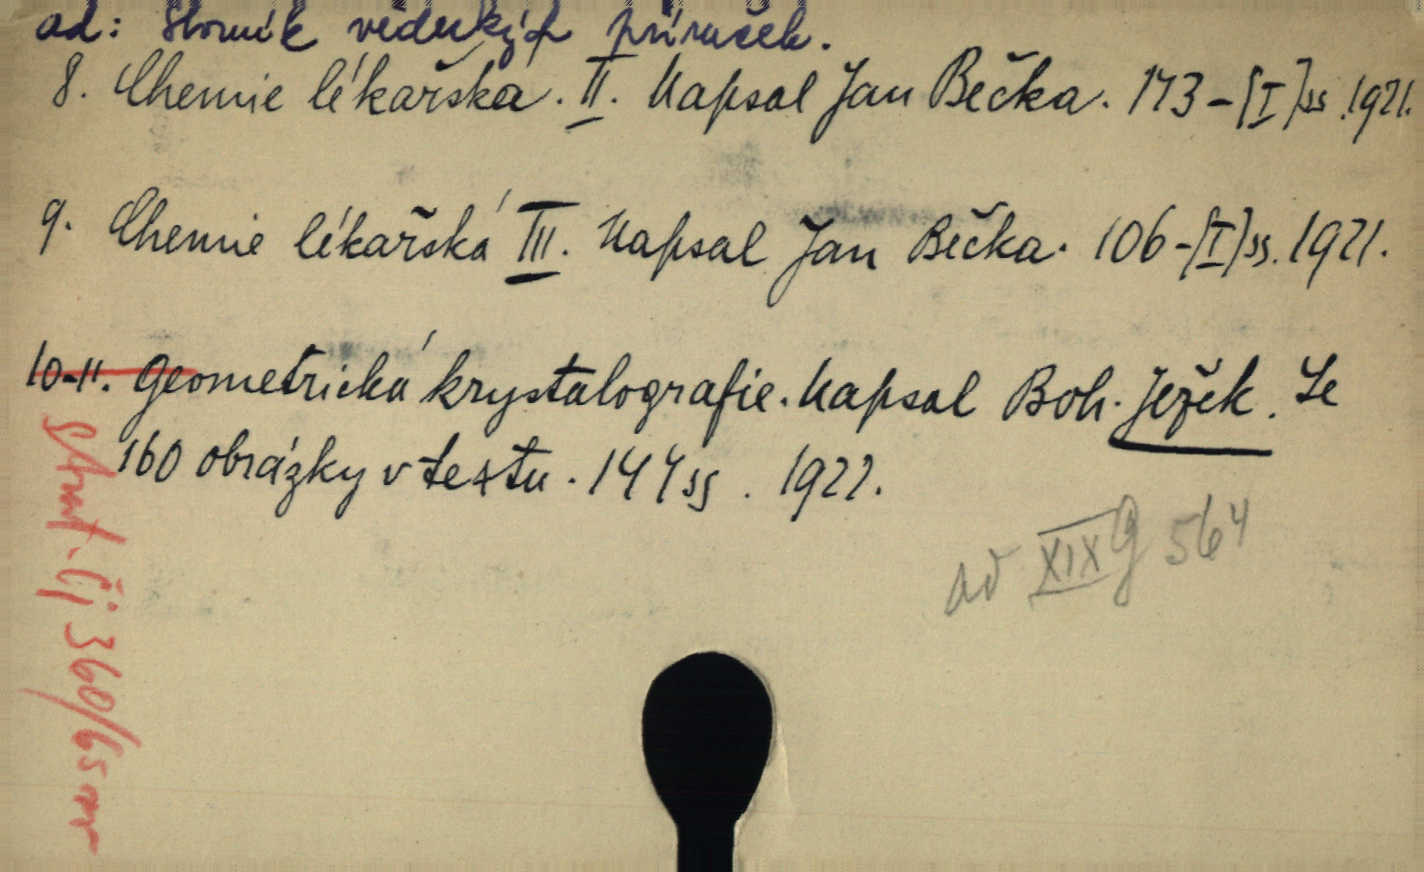 ad: Slovník vědeckých příruček.
8. Chemie lékařská. II. Napsal Jan Bečka. 173-[I]ss. 1921.
9. Chemie lékařská III. Napsal Jan Bečka. 106-[I]ss. 1921.
10-11. Geometrická krystalografie. Napsal Boh. Ježek. Se
160 obrázky v textu. 144ss. 1922.
ad XIX g 564
čj 360/65